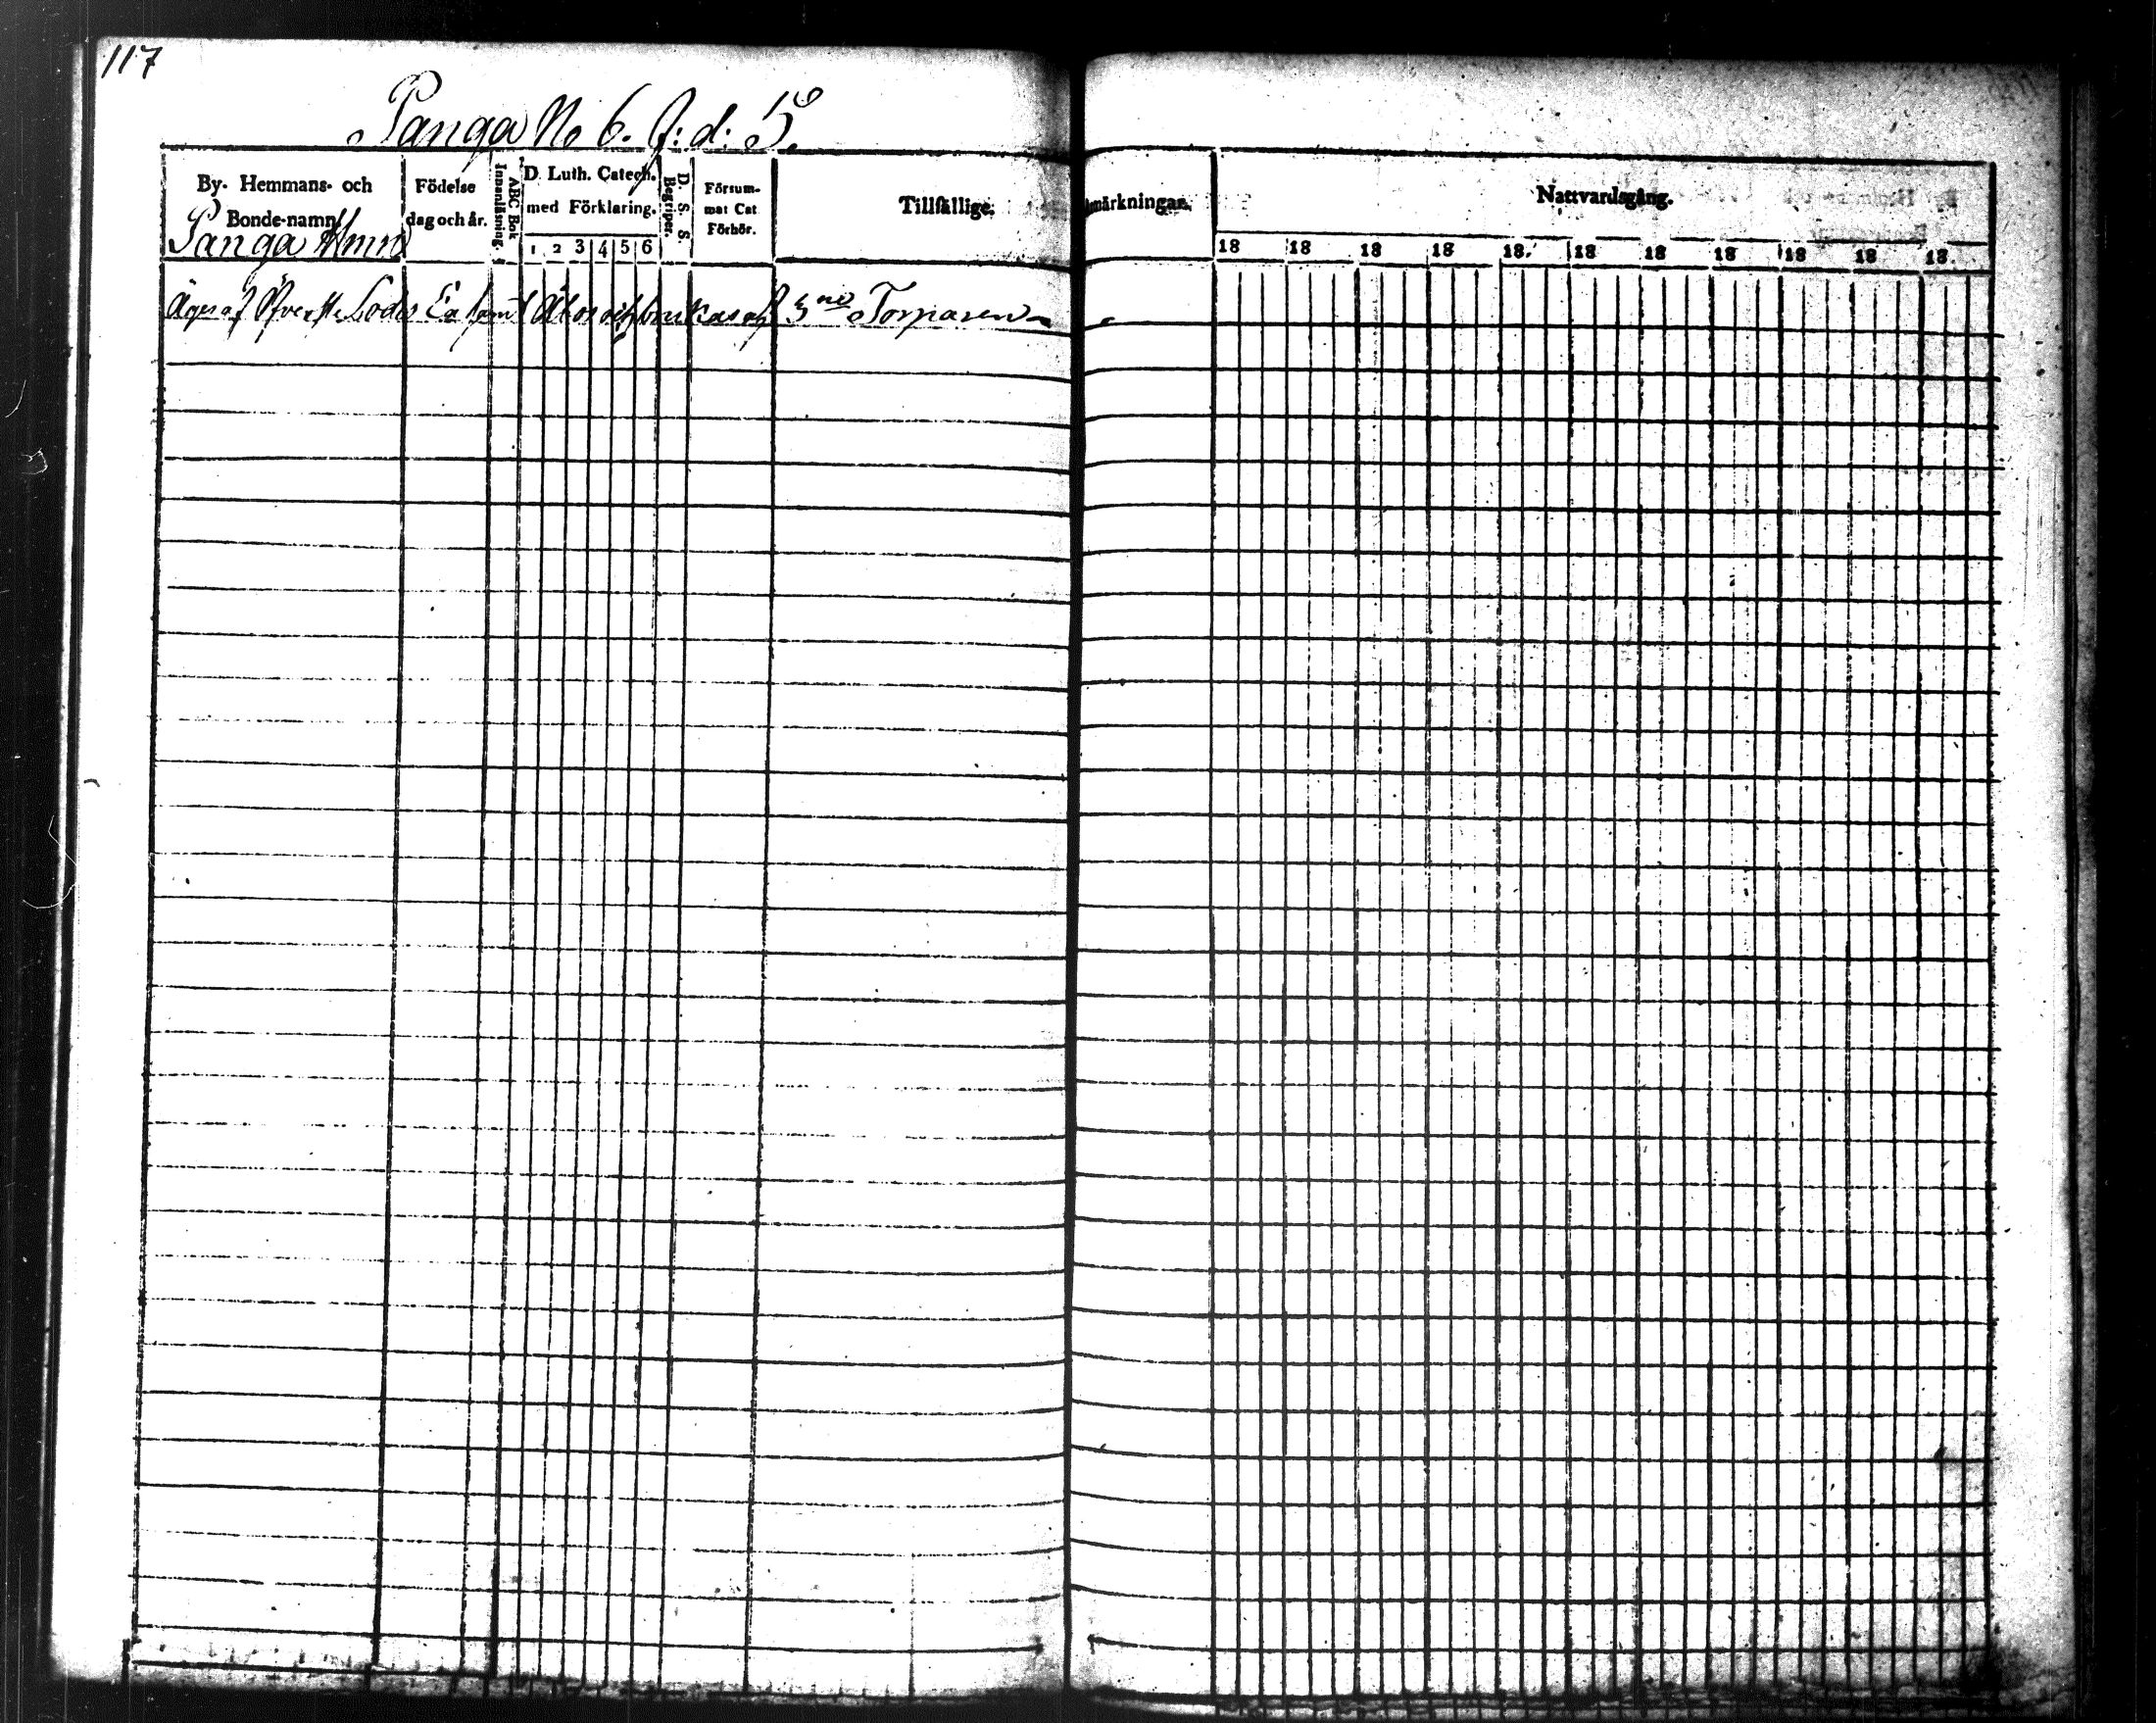 117
Panga No 6. f: d: 5.
By- Hemmans- och Bonde-namn
Födelse dag och år.
ABC Bok
Innanläsning.
D. Luth. Catech. med Förklaring.
1 2 3 4 5 6
D. S. S.
Begriper.
Försum- mat Cat Förhör.
Tillfällige
märkningar.
Nattvardsgång.
18 18 18 18 18 18 18 18 18 18 18
Panga Hmn
Äges af samt Åbo och brukas af 3ne Torparen